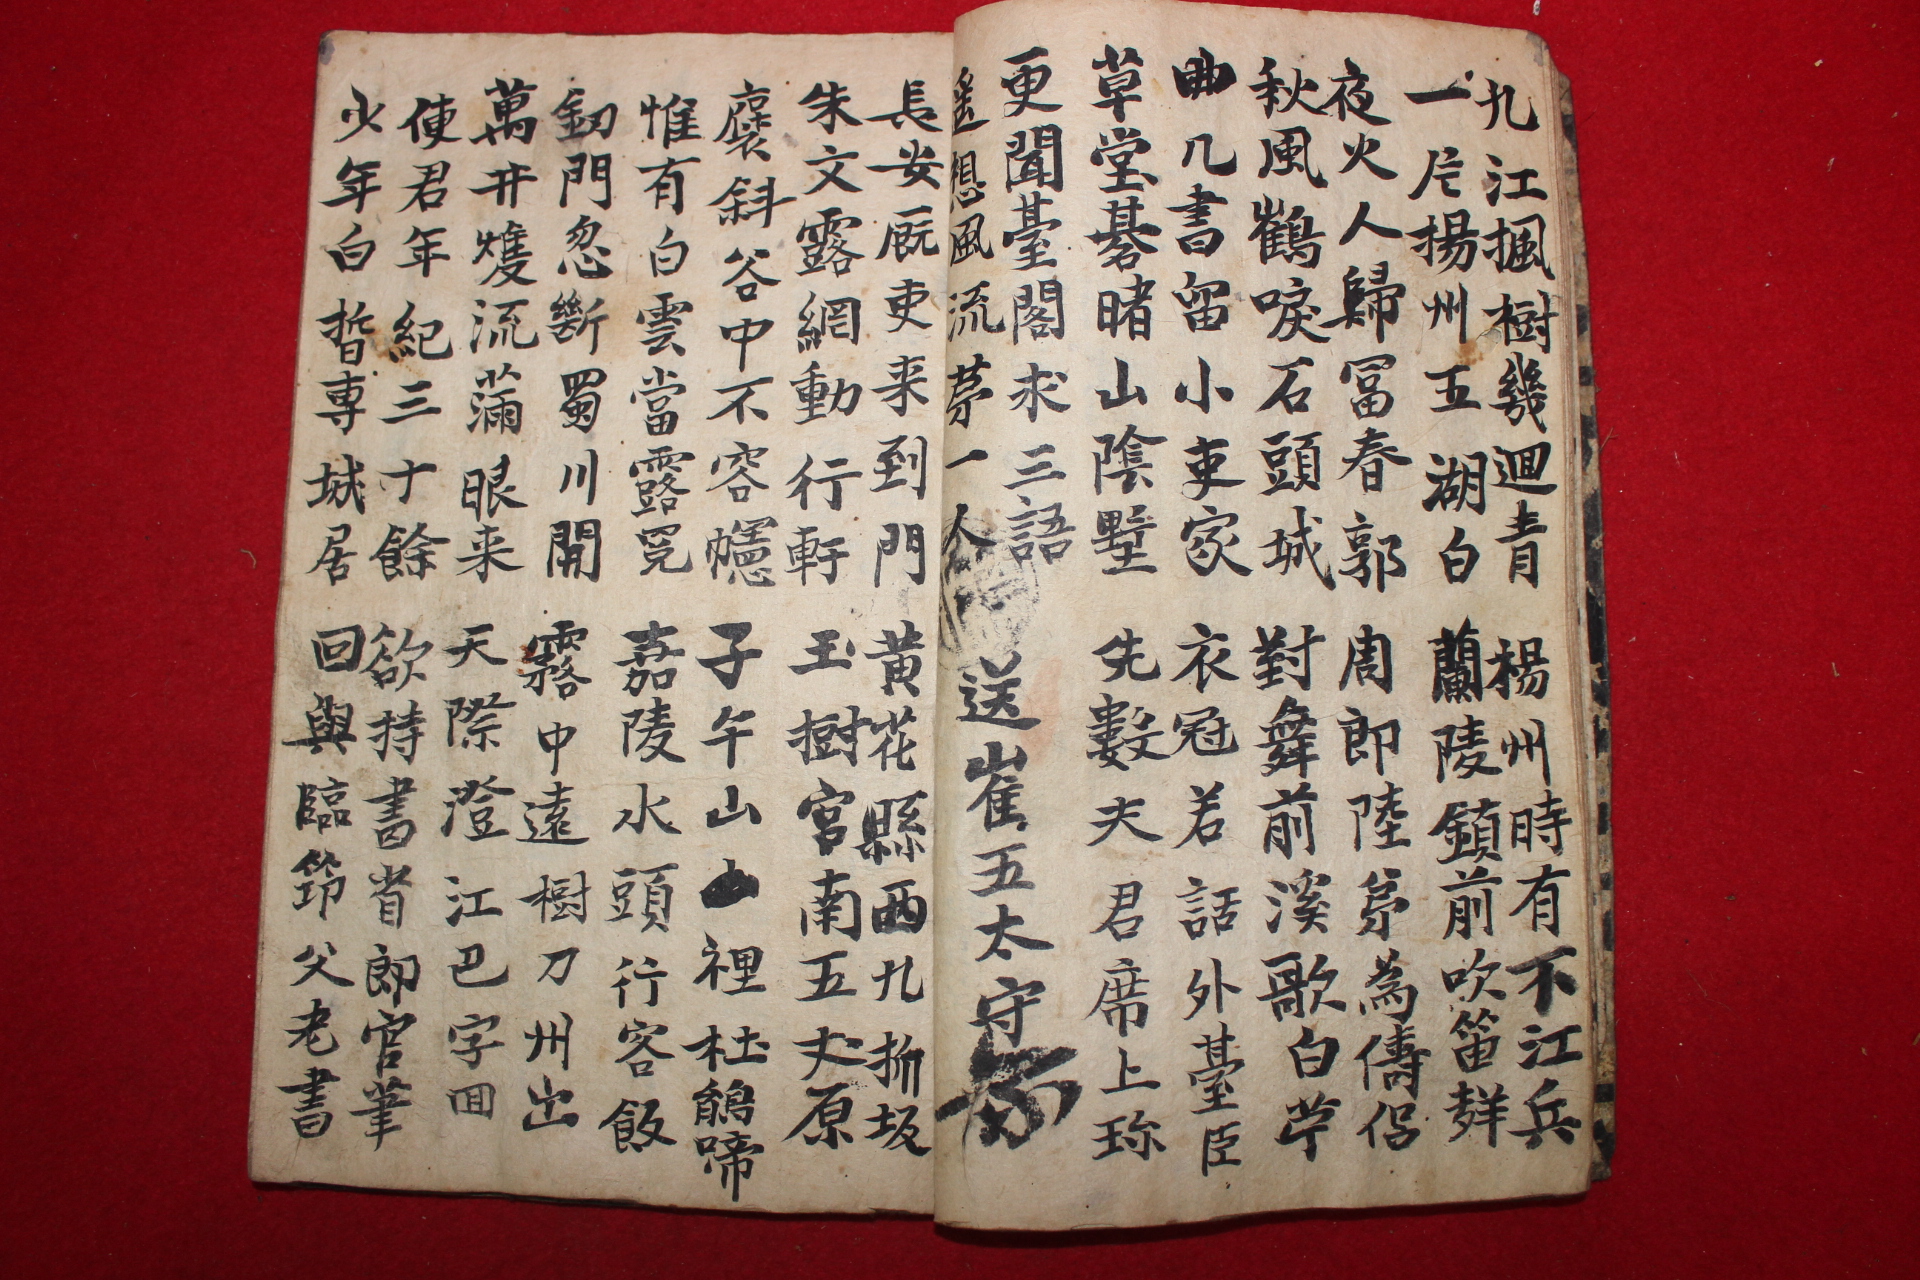 九江楓樹幾迴青 楊州時有不江兵
一片揚州五湖白 蘭陵鎮前吹笛聲
夜火人歸冨春郭 周郎陸弟為儔侶
秋風鶴唳石頭城 對舞前溪歌白苧
曲几書留小吏家 衣冠若話外臺臣
草堂碁賭山陰墅 先數夫君席上珎
更聞臺閣求三語
遙想風流第一人 送崔五太守
長安厩吏来到門 黃花縣西九折坂
朱文露網動行軒 玉樹宮南五丈原
褒斜谷中不容幰 子午山裡杜鵑啼
惟有白雲當露冕 嘉陵水頭行客飯
釼門忽斷蜀川開 霧中遠樹刀州出
萬井雙流滿眼来 天際澄江巴字回
使君年紀三十餘 欲持書省郎官筆
少年白晳專城居 回與臨邛父老書